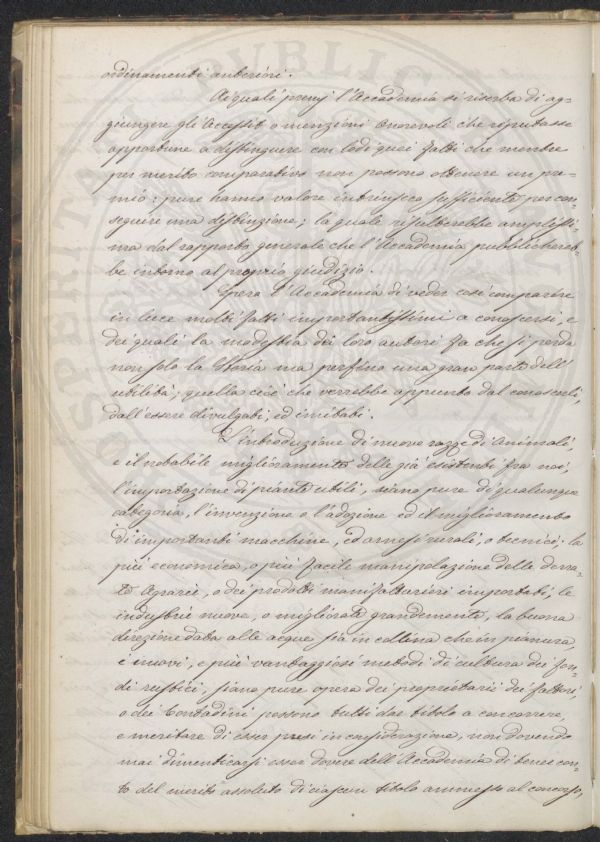 ordinamenti anteriori.
Ai quali premj l'Accademia si riserba di ag=
giungere gli Accessit o menzioni Onorevoli che reputasse
opportune a distinguere con lodi quei fatti che mentre
per merito comparativo non possono ottenere un pre=
mio; pure hanno valore intrinseco sufficiente per con=
seguire una distinzione; la quale risulterebbe amplissi=
ma dal rapporto generale che l'Accademia pubblichereb=
be intorno al proprio giudizio.
Spera l'Accademia di veder così comparire
in luce molti fatti importantissimi a conoscersi, e
dei quali la modestia dei loro autori fa che si perda
non solo la Storia ma perfino una gran parte dell'
utilità; quella cioè che verrebbe appunto dal conoscerli,
dall'essere divulgati, ed imitati.
L'introduzione di nuove razze di Animali,
e il notabile miglioramento delle già esistenti fra noi,
l'importazione di piante utili, siano pure di qualunque
categoria, l'invenzione o l'adozione ed il miglioramento
di importanti macchine, ed arnesi rurali, o tecnici; la
più economica, o più facile manipolazione delle derra=
te Agrarie, o dei prodotti manifatturieri importati; le
industrie nuove, o migliorate grandemente, la buona
direzione data alle acque sia in collina che in pianura,
i nuovi, e più vantaggiosi metodi di cultura dei fon=
di rustici, siano pure opera dei proprietarii dei fattori,
o dei Contadini possono tutti dar titolo a concorrere,
e meritare di esser presi in considerazione, non dovendo
mai dimenticarsi esser dovere dell'Accademia di tener con=
to del merito assoluto di ciascun titolo ammesso al concorso,
PROSPERITATI PUBLICAE